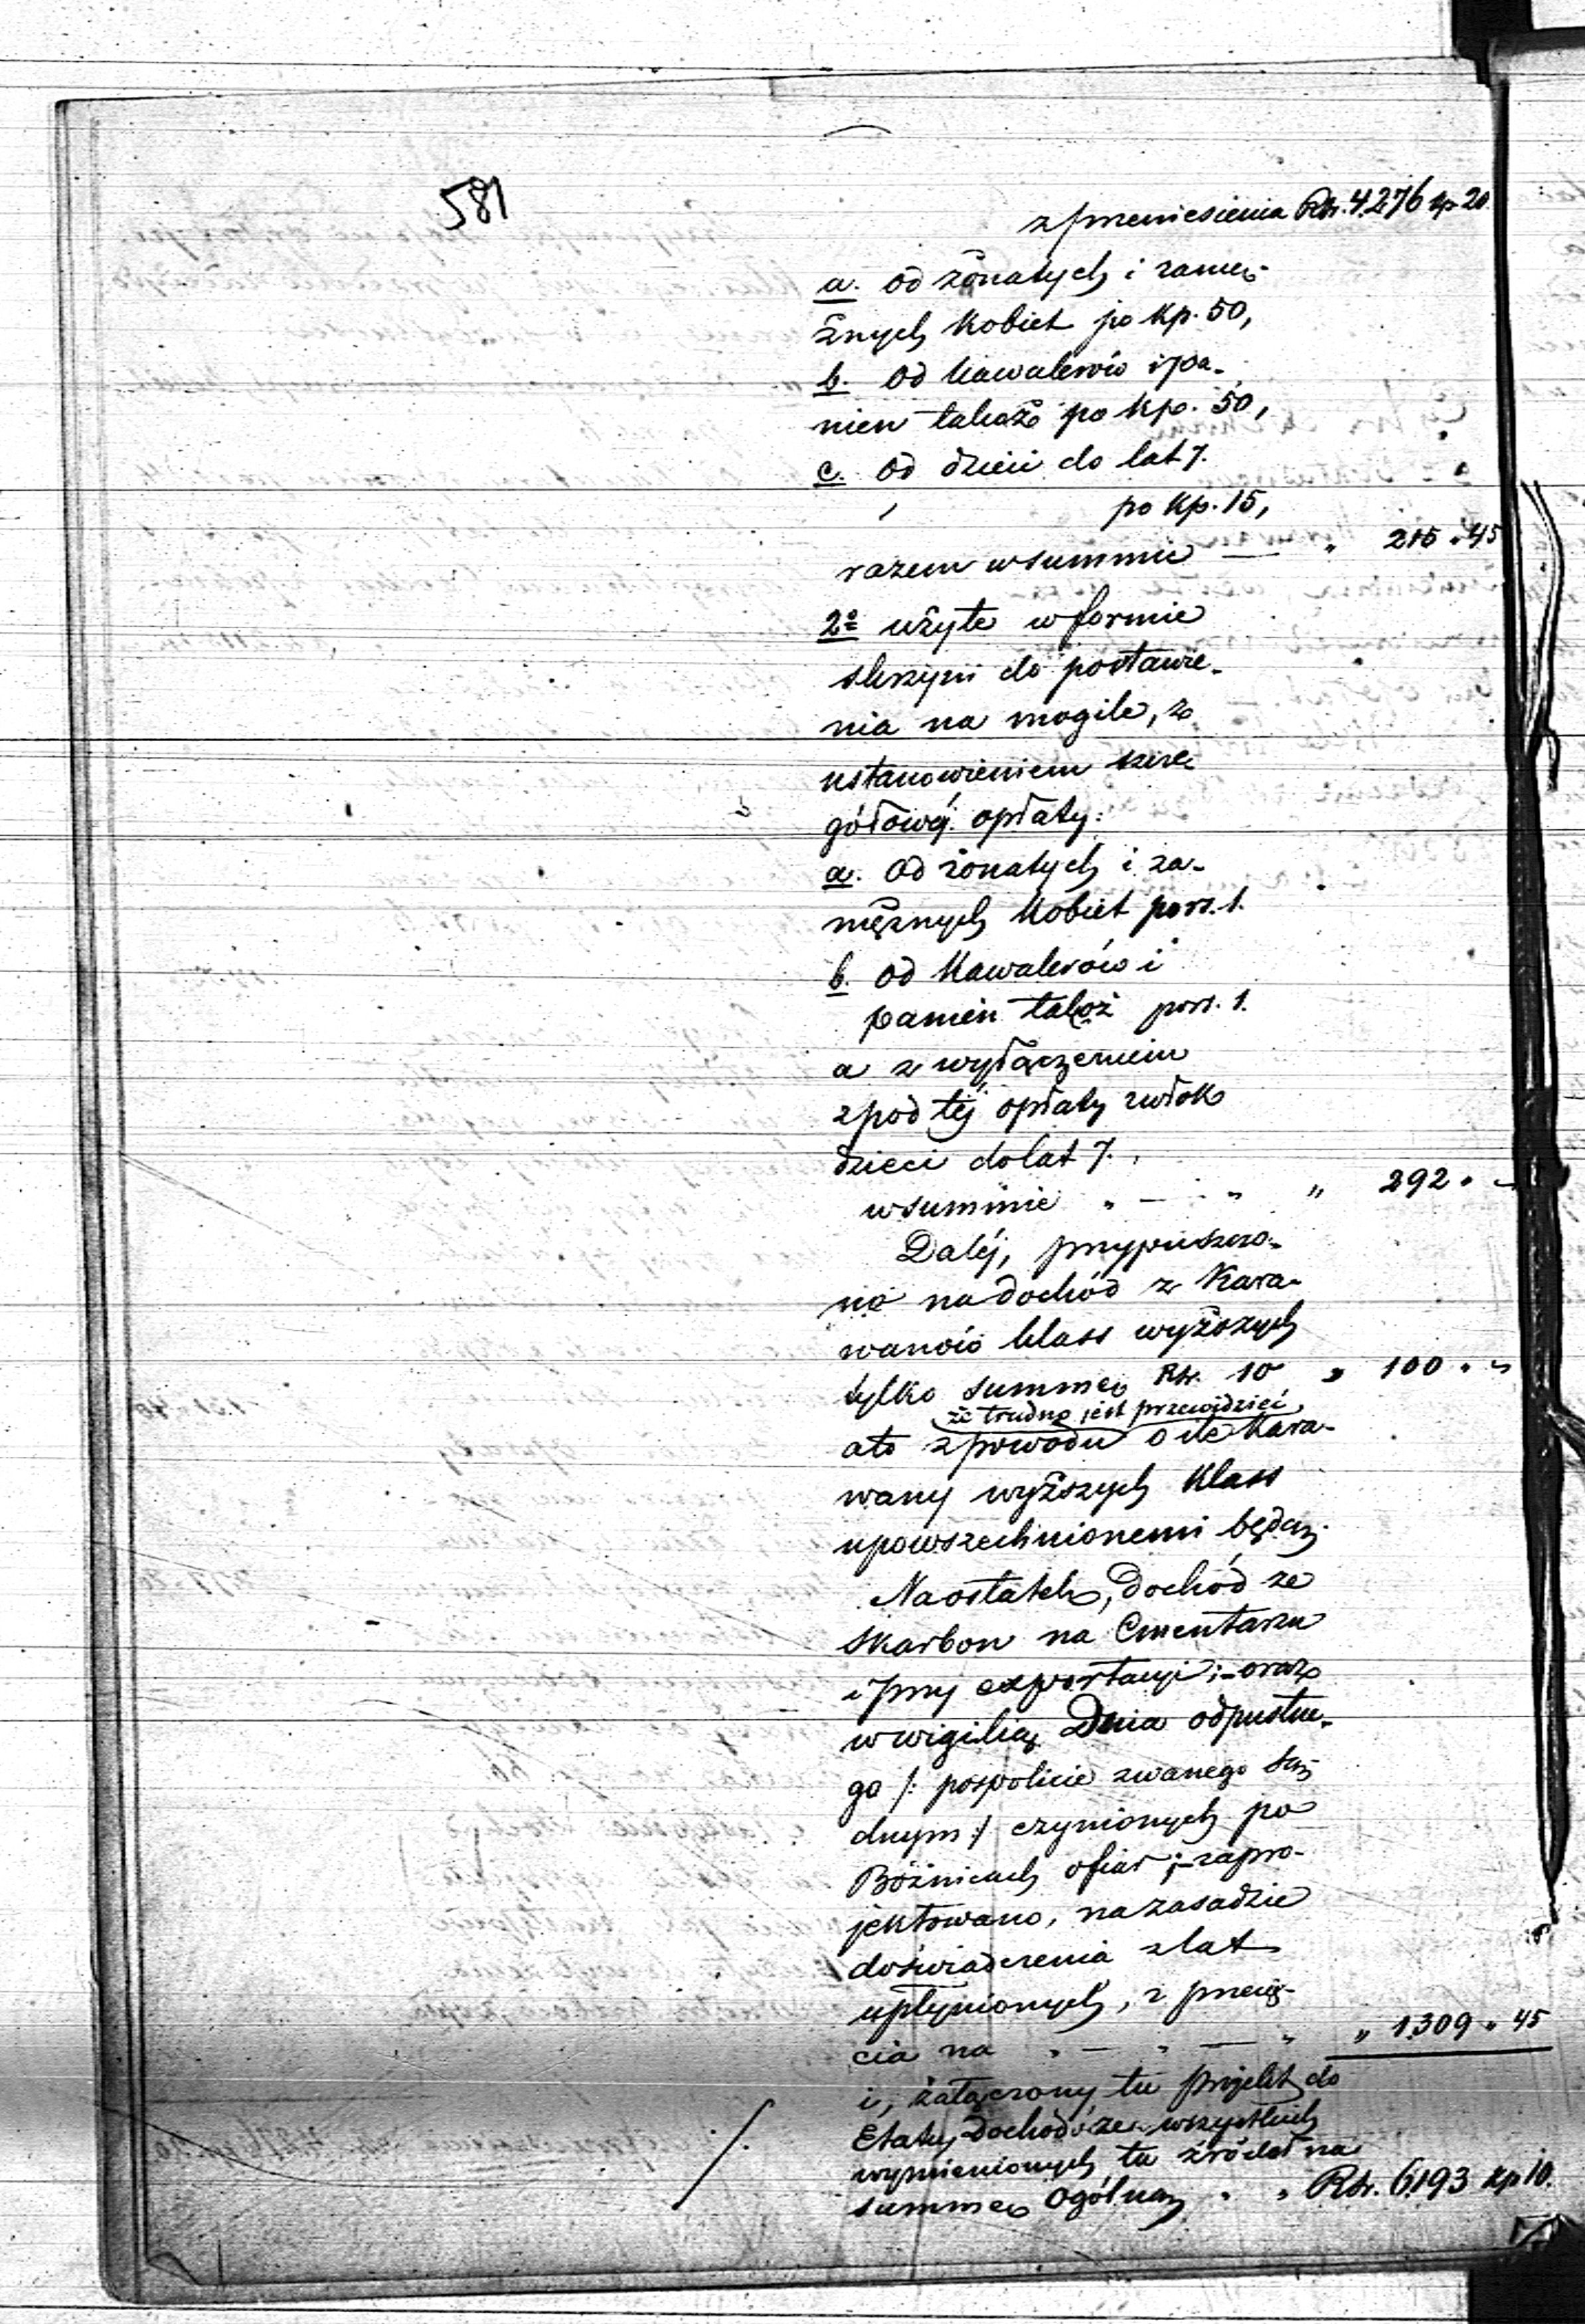 581
z przeniesienia Rs. 4,276 kp 20.
a. od żonatych i zamę-
żnych kobiet po kp. 50,
b. od kawalerów i pa-
nien takoż po kp. 50,
c. od dzieci do lat 7.
po kp. 15,
razem w summie — „ 215 „ 45
2º użyte w formie
skrzyni do postawie-
nia na mogile, z
ustanowieniem szcze-
gółowéj opłaty:
a. od żonatych i za-
mężnych kobiet po rs. 1.
b. od kawalerów i
panien takoż po rs. 1.
a z wyłączeniem
z pod téj opłaty zwłok
dzieci do lat 7.
w summie „ — „ „ 292 „ —
Daléj, przypuszczo-
no na dochód z Kara-
wanów klass wyższych
tylko summę Rs. 10 „ 100 „ —
że trudno jest przewidzieć,
a to z powodu o ile Kara-
wany wyższych Klass
upowszechnionemi będą.
Na ostatek, dochód ze
skarbon na Cmentarzu
i przy exportacyi; – oraz
w wigilią Dnia odpustne-
go /: pospolicie zwanego Są-
dnym :/ czynionych po
Bóżnicach ofiar; – zapro-
jektowano, na zasadzie
doświadczenia z lat
upłynionych, z przecię-
cia na „ — „ — „ „ 1,309 „ 45
i, załączony tu projekt do
Etatu, Dochód ze wszystkich
wymienionych tu źródeł na
summę Ogólną „ „ Rs. 6,193 kp 10.
./.